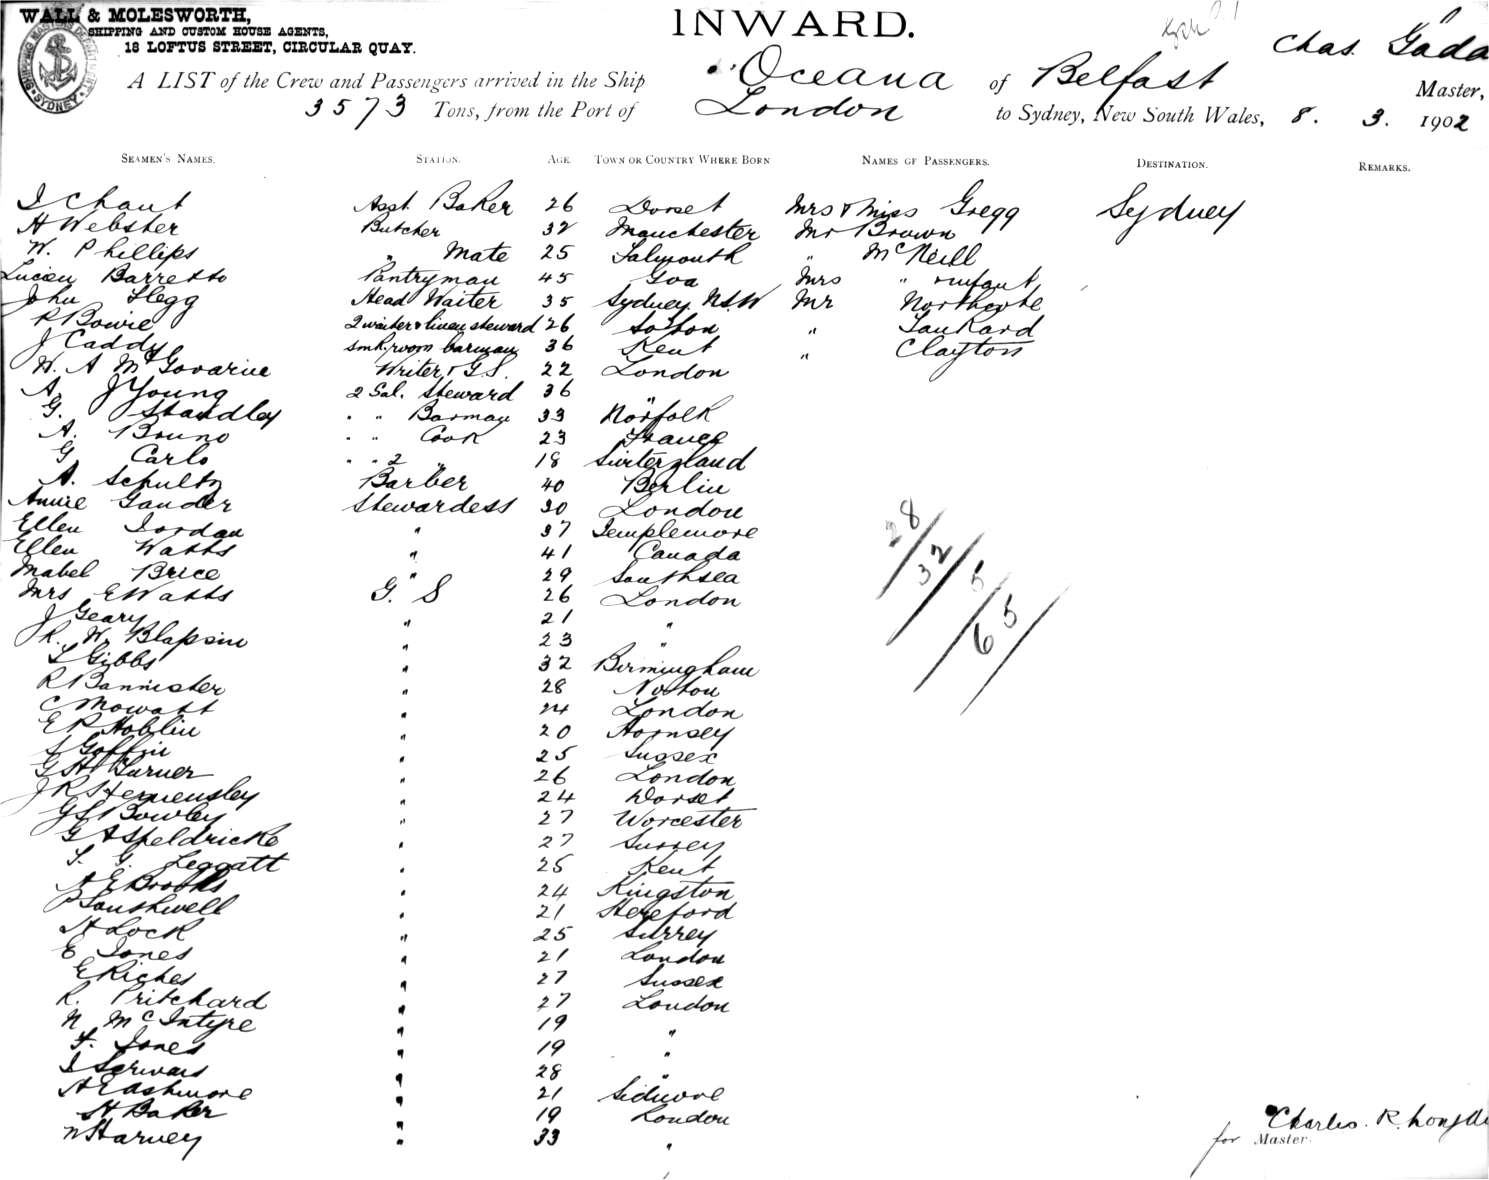 WALL & MOLESWORTH,
SHIPPING AND CUSTOM HOUSE AGENTS,
18 LOFTUS STREET, CIRCULAR QUAY.
SYDNEY
INWARD.
Chas. Gada
A LIST of the Crew and Passengers arrived in the Ship Oceana of Belfast Master,
3573 Tons, from the Port of London to Sydney, New South Wales, 8. 3. 1902
SEAMEN'S NAMES. STATION. AGE TOWN OR COUNTRY WHERE BORN NAMES OF PASSENGERS. DESTINATION. REMARKS.
I Chant Asst. Baker 26 Dorset Mrs & Miss Gregg Sydney
H Webster Butcher 32 Manchester Mr Brown
W. Phillips " Mate 25 Falmouth " McNeill
Lucien Barretto Pantryman 45 Goa Mrs " & infant
John Flegg Head Waiter 35 Sydney N.S.W Mr Northcote
R Bowie 2 waiter & linen steward 26 So'ton " Tankard
J Caddy smk. room barman 36 Kent " Clayton
W. A McGovarine Writer & G.S. 22 London
A. J Young 2 Sal. Steward 36 "
G. Standley " " Barman 33 Norfolk
A. Bruno " " Cook 23 France
G Carlo " " 2 " 18 Switerzland
A. Schultz Barber 40 Berlin
Annie Gander Stewardess 30 London
Ellen Jordan " 37 Templemore
Ellen Watts " 41 Canada
Mabel Brice " 29 Southsea
Mrs E Watts G. S 26 London
J Geary " 21 "
R. W. " 23 "
L Gibbs " 32 Birmingham
R Bannister " 28 Norton
C Mowatt " 24 London
E P Hoblin " 20 Hornsey
S Goffin " 25 Sussex
G H Turner " 26 London
J R Hemensley " 24 Dorset
G S Bowley " 27 Worcester
G A Speldricke " 27 Surrey
T. G. Leggatt " 25 Kent
A E Brooks " 24 Kingston
P Southwell " 21 Hereford
H Lock " 25 Surrey
E Jones " 21 London
E Riches " 27 Sussex
R. Pritchard " 27 London
N McIntyre " 19 "
F. Jones " 19 "
I " 28 "
A E Ashmore " 21
H Baker " 19 London
N Harvey " 33 "
28/32/5/65
Charles. R.
for Master.